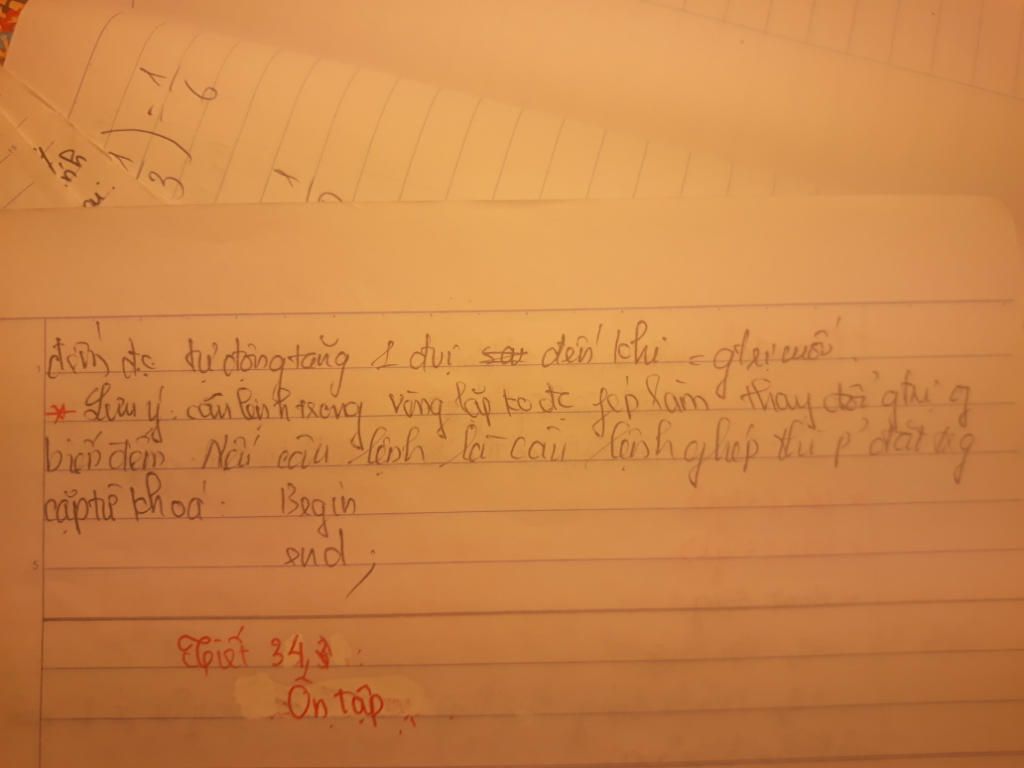 1
6
1
3
)
=
1
đếm đc tự động tăng 1 đvị đến khi = gtrị cuối.
* Lưu ý. câu lệnh trong vòng lặp ko đc fép làm thay đổi gtrị
biến đếm. Nếu câu lệnh là câu lệnh ghép thì p' đặt trg
cặp từ khoá. Begin
end ;
Tiết 34,
Ôn tập